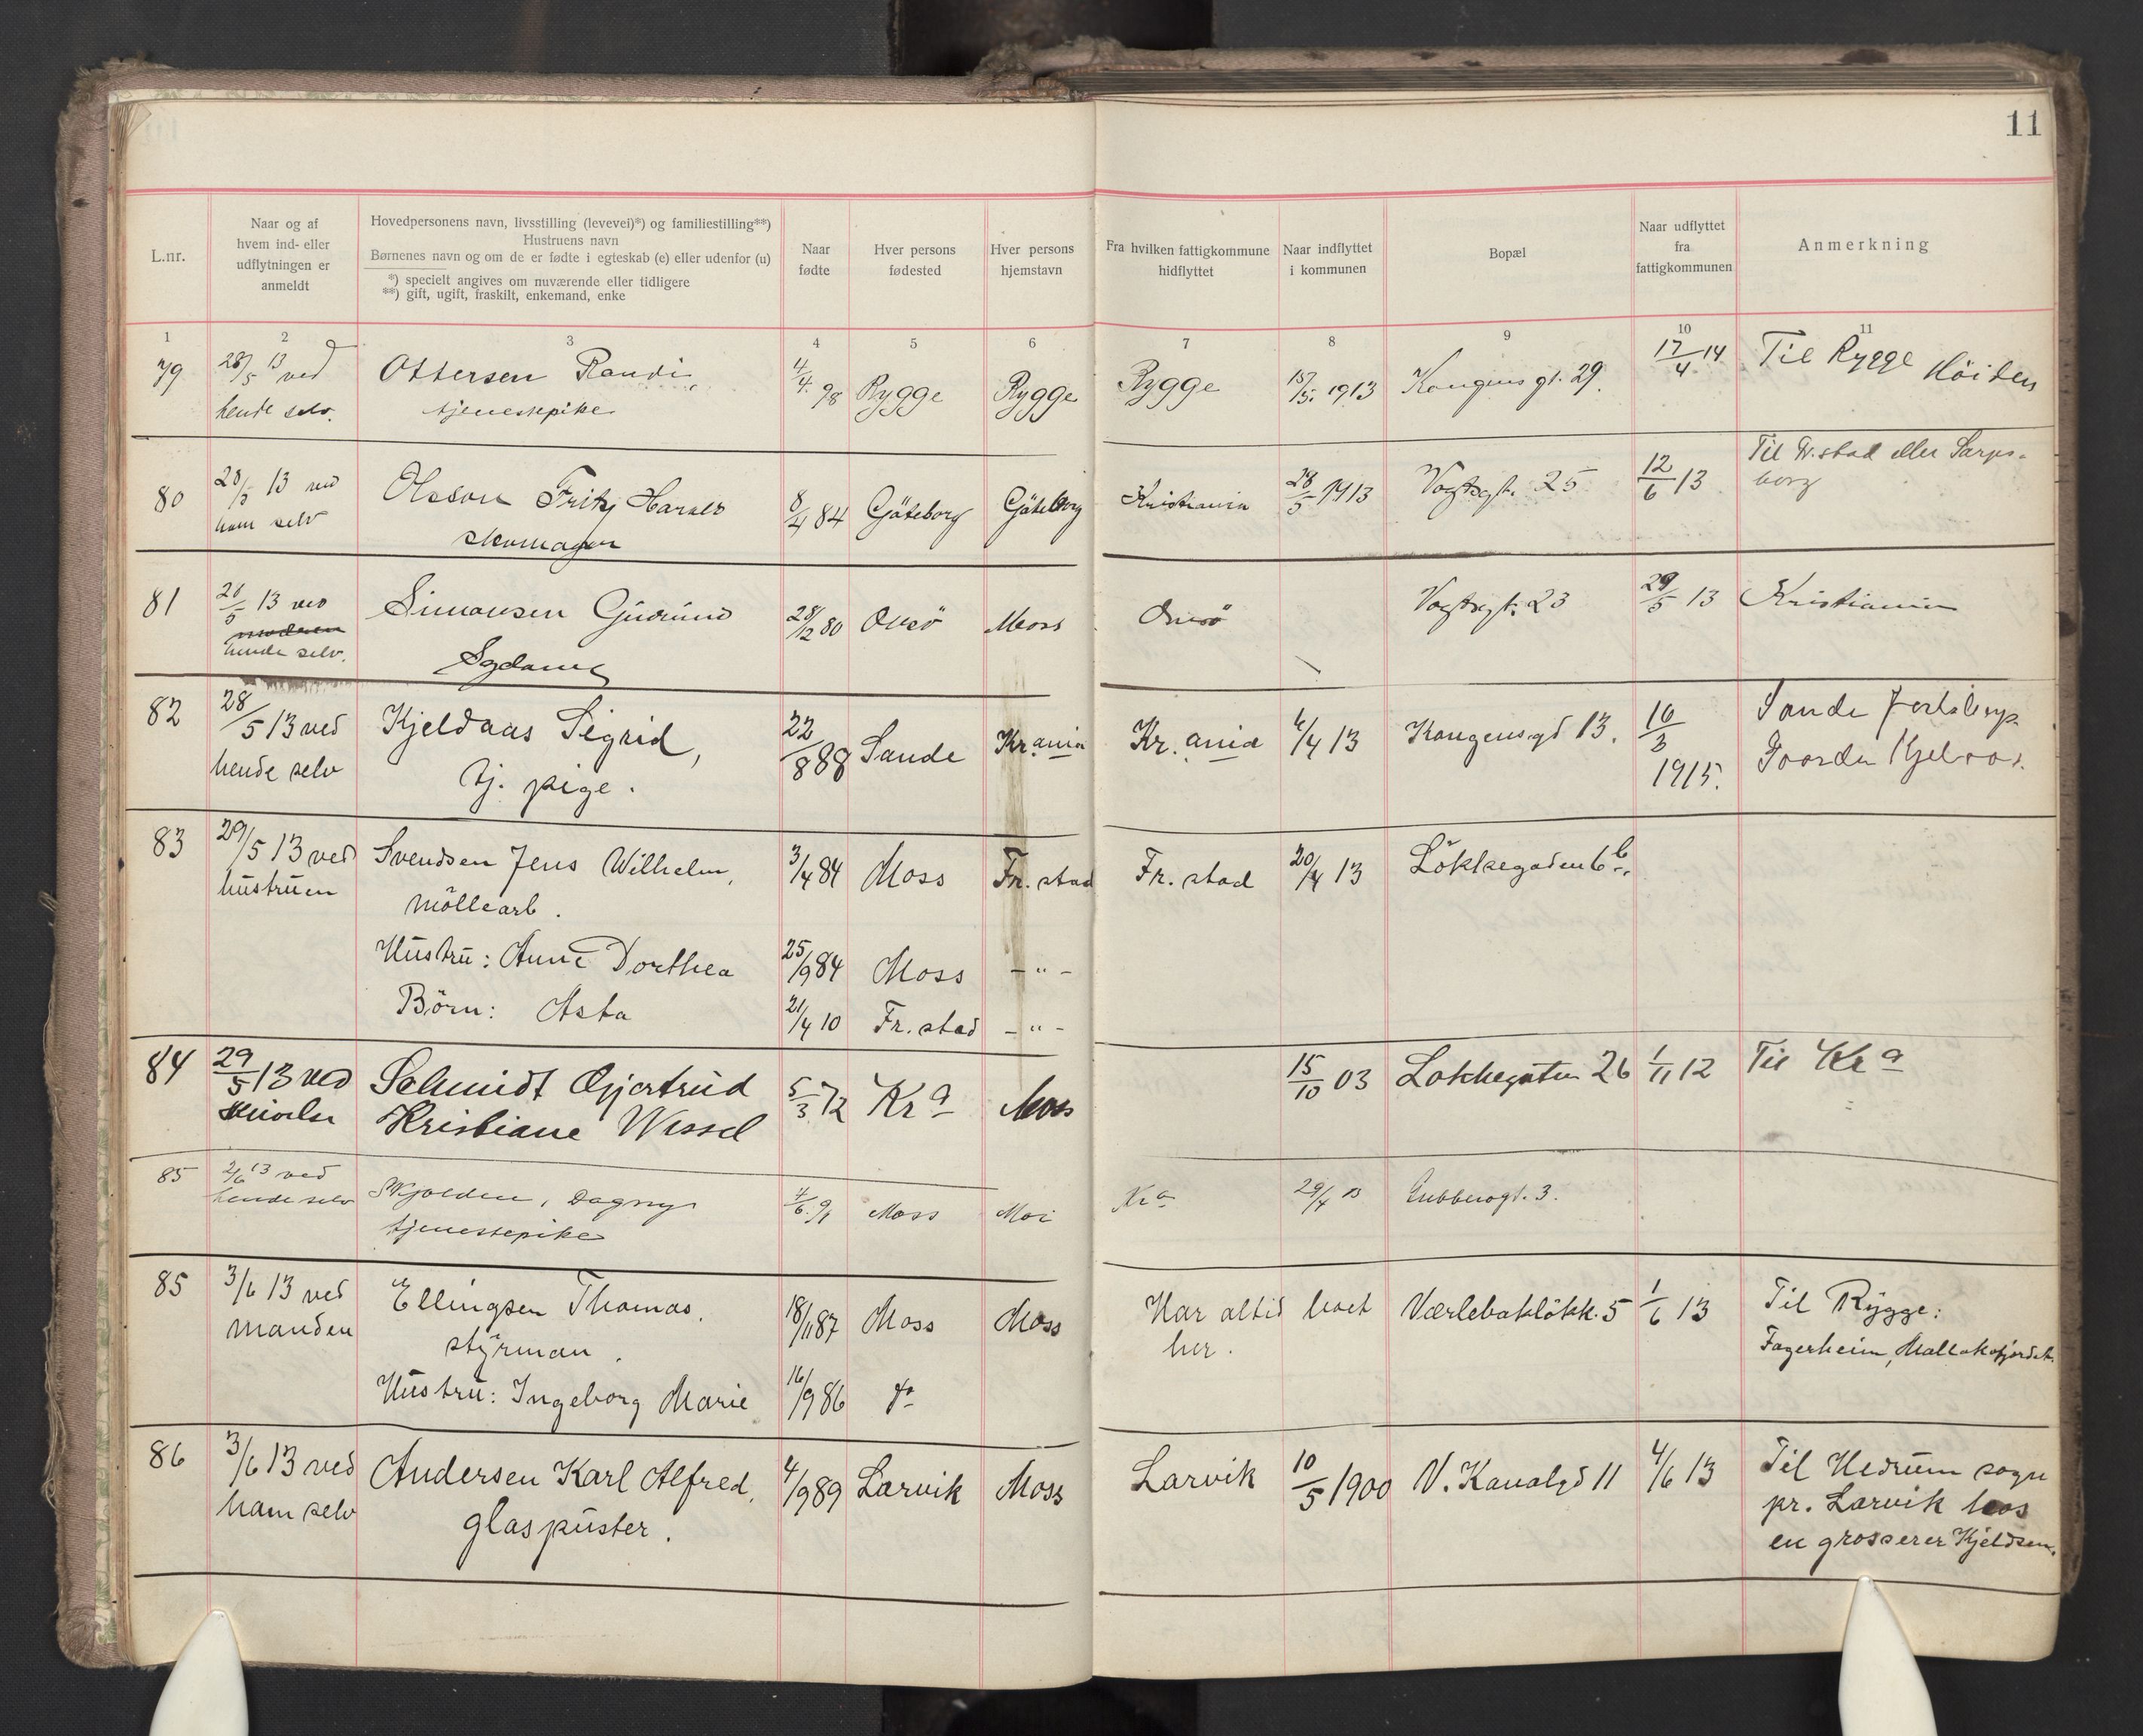 11
L.nr.
Naar og af
hvem ind- eller
udflytningen er
anmeldt
Hovedpersonens navn, livsstilling (levevei)*) og familiestilling**)
Hustruens navn
Børnenes navn og om de er fødte i egteskab (e) eller udenfor (u)
*) specielt angives om nuværende eller tidligere
**) gift, ugift, fraskilt, enkemand, enke
Naar
fødte
Hver persons
fødested
Hver persons
hjemstavn
Fra hvilken fattigkommune
hidflyttet
Naar indflyttet
i kommunen
Bopæl
Naar udflyttet
fra
fattigkommunen
Anmerkning
1 2 3 4 5 6 7 8 9 10 11
79 28/5 13 ved Ottersen Randi 4/4. 98 Rygge Rygge Rygge 15/5. 1913 Kongens gt. 29. 17/4 14 Til Rygge Höiden
hende selv. tjenestepike
80 28/5 13 ved Olsson Fritz Harald 8/4 84 Göteborg Göteborg Kristiania 28/5 1913 Vogtsgt. 25 12/6 13 Til Fr.stad eller Sarps-
borg
ham selv skomager
81 28/5 13 ved Simonsen Gudrund 28/12 80 Onsö Moss Onsö Vogtsgt. 23 29/5 13 Kristiania
hende selv.
82 28/5 13 ved Kjeldaas Sigrid, 22/8 88 Sande Kr.ania Kr.ania 4/4 13 Kongensgd 13. 16/3 Sande
hende selv tj. pige. 1915.
83 29/5 13 ved Svendsen Jens Wilhelm, 3/4 84 Moss Fr. stad Fr. stad 20/4 13 Lökkegaden 6 b
hustruen möllearb.
Hustru: Anne Dorthea 25/9 84 Moss - " -
Börn: Asta 21/4 10 Fr. stad - " -
84 29/5 13 ved Schmidt Gjertrud 5/3 72 Kr a Moss 15/10 03 Lökkegaten 26 1/11 12 Til Kr a
Kristiane Wessel
85 2/6 13 ved Skjolden, Dagny Moss Kr a 29/4 13
hende selv tjenestepike
85 3/6 13 ved Ellingsen Thomas. 18/11 87 Moss Moss Har altid boet Værlebaklökk. 5 1/6 13 Til Rygge:
manden styrman. her. Fagerheim,
Hustru: Ingeborg Marie 16/9 86 do
86 3/6 13 ved Andersen Karl Alfred, 4/9 89 Larvik Moss Larvik 10/5 1900 V. Kanalgd 11 4/6 13 Til Hedrum sogn
ham selv glaspuster. pr. Larvik hos
en grosserer Kjeldsen.